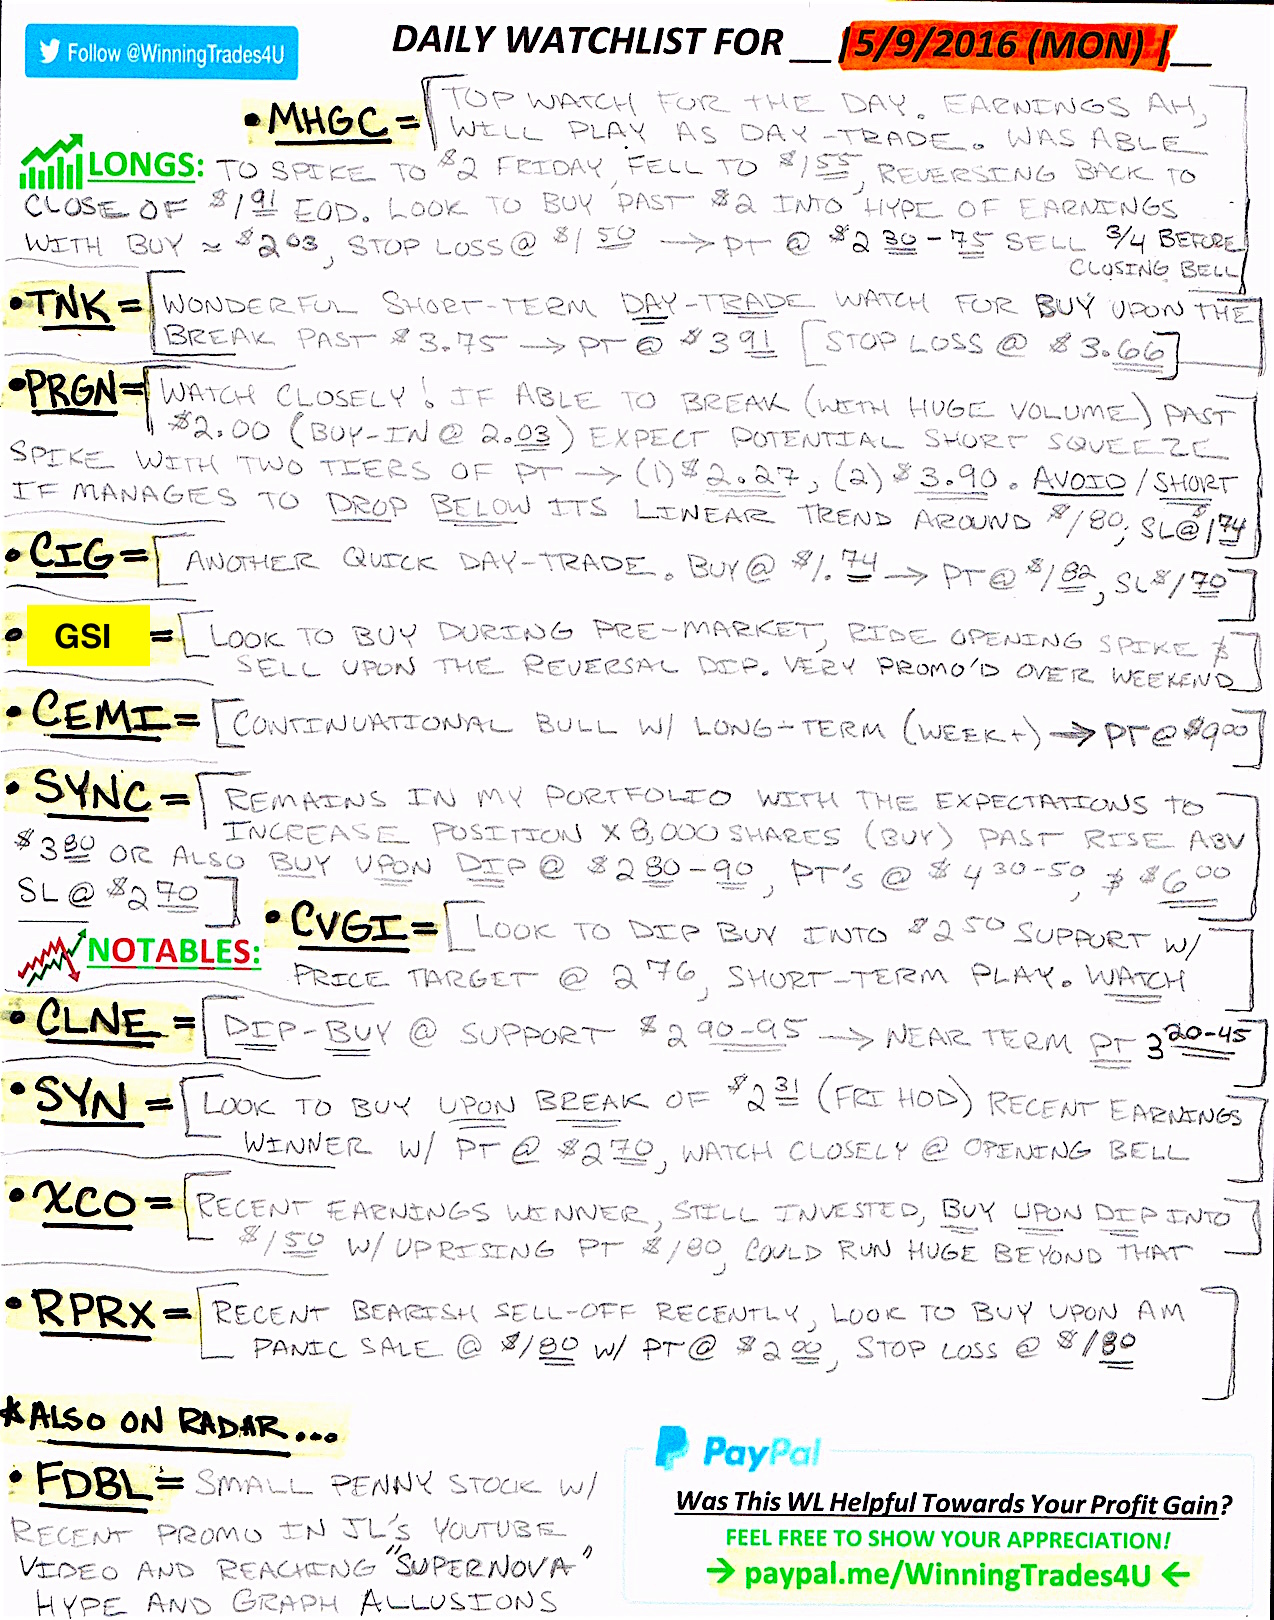 Follow @WinningTrades4U
DAILY WATCHLIST FOR __ |5/9/2016 (MON) |__
• MHGC = [TOP WATCH FOR THE DAY. EARNINGS AH,
WILL PLAY AS DAY-TRADE. WAS ABLE
LONGS: TO SPIKE TO $2 FRIDAY, FELL TO $1 55, REVERSING BACK TO
CLOSE OF $1 91 EOD. LOOK TO BUY PAST $2 INTO HYPE OF EARNINGS
WITH BUY ≈ $2 03, STOP LOSS @ $1 50 → PT @ $2 30-75 SELL 3/4 BEFORE
CLOSING BELL]
• TNK = [WONDERFUL SHORT-TERM DAY-TRADE WATCH FOR BUY UPON THE
BREAK PAST $3.75 → PT @ $3 91 [STOP LOSS @ $3.66]
• PRGN = [WATCH CLOSELY! IF ABLE TO BREAK (WITH HUGE VOLUME) PAST
$2.00 (BUY-IN @ 2.03) EXPECT POTENTIAL SHORT SQUEEZE
SPIKE WITH TWO TIERS OF PT → (1) $2.27, (2) $3.90. AVOID/SHORT
IF MANAGES TO DROP BELOW ITS LINEAR TREND AROUND $1 80; SL@ $1 74]
• CIG = [ANOTHER QUICK DAY-TRADE. BUY @ $1.74 → PT @ $1 82, SL $1 70]
• GSI = [LOOK TO BUY DURING PRE-MARKET, RIDE OPENING SPIKE &
SELL UPON THE REVERSAL DIP. VERY PROMO'D OVER WEEKEND]
• CEMI = [CONTINUATIONAL BULL W/ LONG-TERM (WEEK+) → PT @ $9 00]
• SYNC = [REMAINS IN MY PORTFOLIO WITH THE EXPECTATIONS TO
INCREASE POSITION X 8,000 SHARES (BUY) PAST RISE ABV
$3 80 OR ALSO BUY UPON DIP @ $2 80-90, PT'S @ $4 30-50, & $6 00
SL @ $2 70]
• CVGI = [LOOK TO DIP BUY INTO $2 50 SUPPORT W/
NOTABLES:
PRICE TARGET @ 2 76, SHORT-TERM PLAY. WATCH]
• CLNE = [DIP-BUY @ SUPPORT $2 90-95 → NEAR TERM PT 3 20-45]
• SYN = [LOOK TO BUY UPON BREAK OF $2 31 (FRI HOD) RECENT EARNINGS
WINNER W/ PT @ $2 70, WATCH CLOSELY @ OPENING BELL]
• XCO = [RECENT EARNINGS WINNER, STILL INVESTED, BUY UPON DIP INTO
$1 50 W/ UPRISING PT $1 80, COULD RUN HUGE BEYOND THAT]
• RPRX = [RECENT BEARISH SELL-OFF RECENTLY, LOOK TO BUY UPON AM
PANIC SALE @ $1 80 W/ PT @ $2 00, STOP LOSS @ $1 80]
*ALSO ON RADAR...
• FDBL = SMALL PENNY STOCK W/
RECENT PROMO IN JL'S YOUTUBE
VIDEO AND REACHING "SUPERNOVA"
HYPE AND GRAPH ALLUSIONS
PayPal
Was This WL Helpful Towards Your Profit Gain?
FEEL FREE TO SHOW YOUR APPRECIATION!
→ paypal.me/WinningTrades4U ←